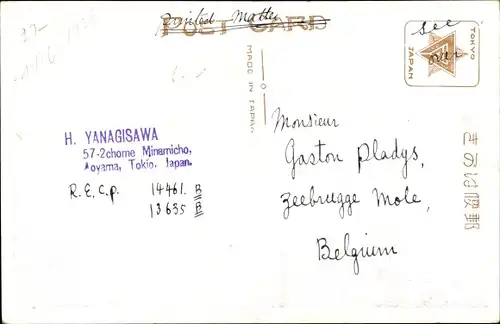 Printed Matter
POST CARD
See
over
TOKYO
JAPAN
MADE IN JAPAN
H. YANAGISAWA
57-2chome Minamicho,
Aoyama, Tokio. Japan.
R.E.C.P. 14461.B
13635 B
Monsieur
Gaston Pladys,
Zeebrugge Mole,
Belgium
きのは便郵